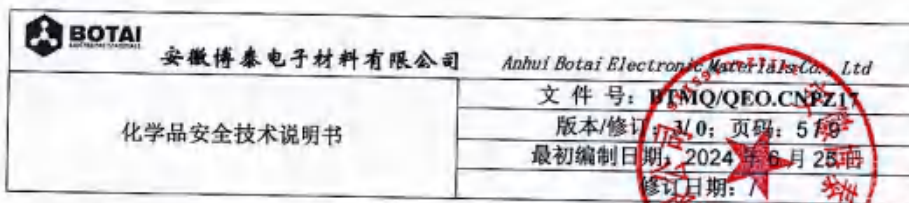 BOTAI
安徽博泰电子材料有限公司 Anhui Botai Electronic Materials Co., Ltd
文 件 号: BTMQ/QEO.CNPZ17
化学品安全技术说明书
版本/修订: 3/ 0; 页码: 5 / 9
最初编制日期: 2024 年 6 月 25 日
修订日期: /